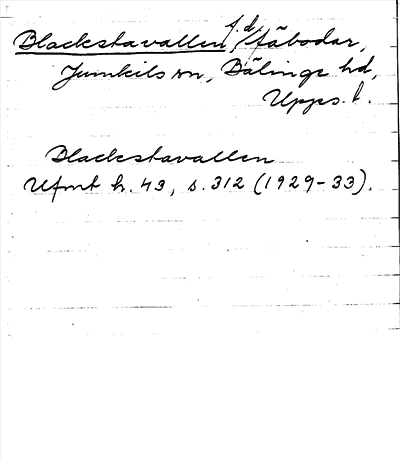 Blackstavallen f.d./fäbodar,
Jumkils sn, Bälinge hd,
Upps. l.
Blackstavallen
Ufmt h. 43, s. 312 (1929-33).